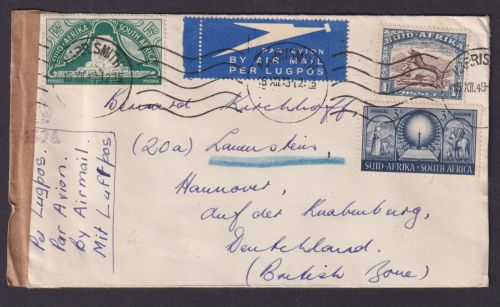 SUID-AFRIKA SOUTH AFRICA
POSTAGE
PAR AVION
BY AIR MAIL
PER LUGPOS
SUID-AFRIKA
3D 3D
POSTAGE
SUID-AFRIKA · SOUTH AFRICA
SMITH
XII.49
Bernard Kirchhoff,
(20a) Lauenstein,
Hannover,
auf der Knabenburg,
Deutschland.
(British Zone)
Per Lugpos
Par Avion.
By Airmail.
Mit Luftpos